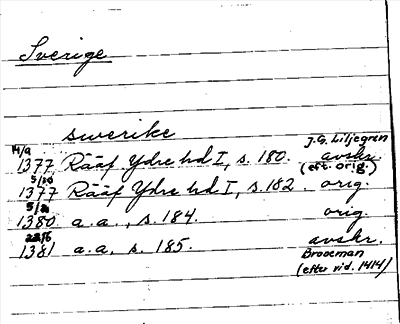 Sverige
swerike
14/9 J.G. Liljegren
1377 Rääf Ydre hd I, s. 180. avskr.
(eft. orig.)
5/10
1377 Rääf Ydre hd I, s. 182. orig.
5/2
1380 a.a., s. 184. orig.
22/6
1381 a.a. s. 185. avskr.
Brooeman
(efter vid. 1414)